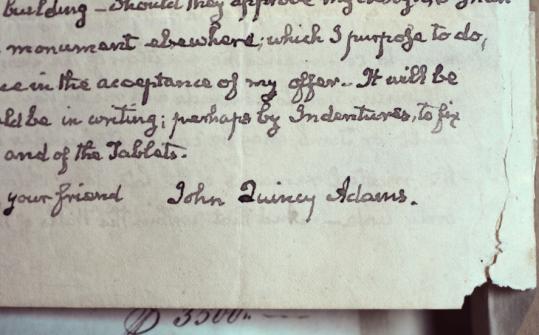 building - Should they approve my
monument elsewhere; which I purpose to do,
ce in the acceptance of my offer.. It will be
ld be in writing; perhaps by Indentures, to fix
and of the Tablets.
your friend John Quincy Adams.
$ 3500